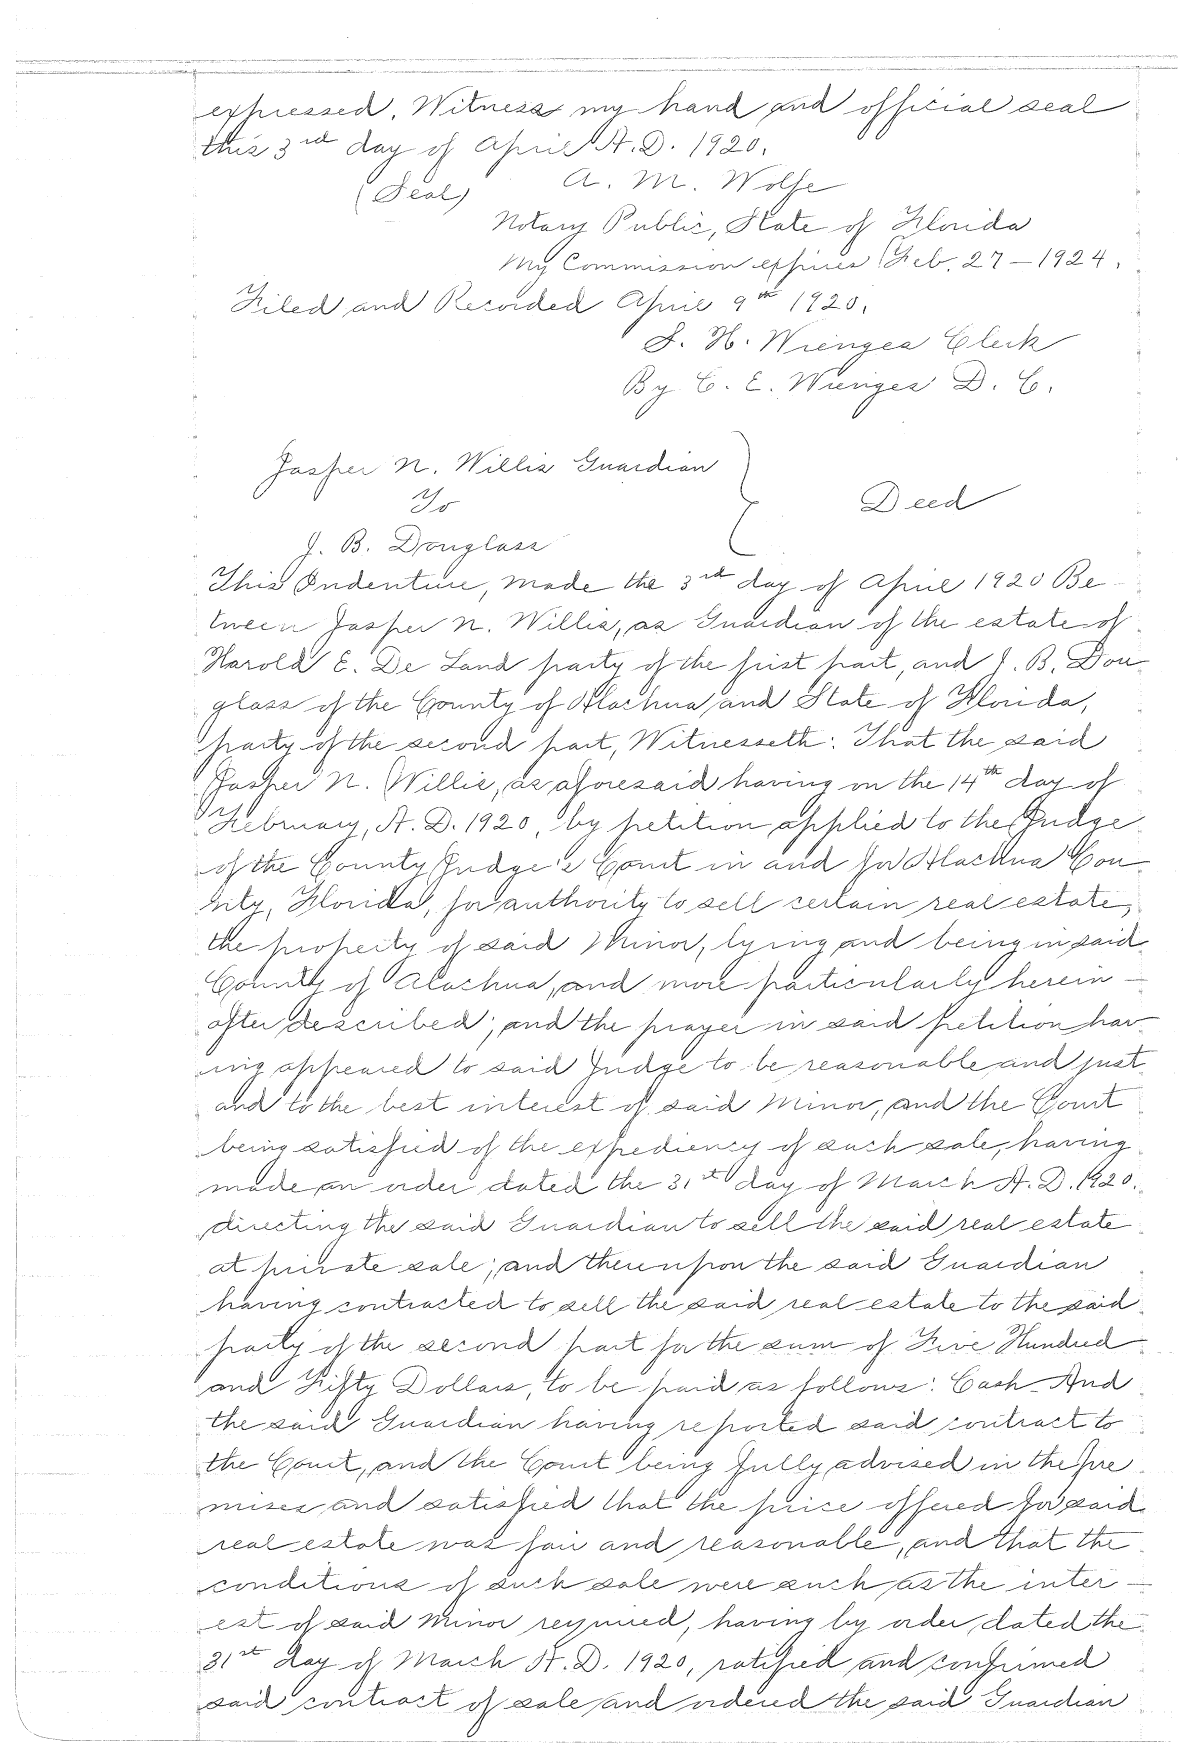 expressed. Witness my hand and official seal
this 3rd day of April A. D. 1920.
A. M. Wolfe
(Seal)
Notary Public, State of Florida
My Commission expires Feb. 27 - 1924.
Filed and Recorded April 9th 1920.
S. H. Wienges Clerk
By C. E. Wienges D. C.
Jasper N. Willis Guardian
To
Deed
J. B. Douglass
This Indenture, made the 3rd day of April 1920 Be-
tween Jasper N. Willis, as Guardian of the estate of
Harold E. De Land party of the first part, and J. B. Dou-
glass of the County of Alachua and State of Florida,
party of the second part, Witnesseth: That the said
Jasper N. Willis, as aforesaid having on the 14th day of
February, A. D. 1920, by petition applied to the Judge
of the County Judge's Court in and for Alachua Cou-
nty, Florida, for authority to sell certain real estate,
the property of said Minor, lying and being in said
County of Alachua, and more particularly herein-
after described; and the prayer in said petition hav-
ing appeared to said Judge to be reasonable and just
and to the best interest of said Minor, and the Court
being satisfied of the expediency of such sale, having
made an order dated the 31st day of March A. D. 1920.
directing the said Guardian to sell the said real estate
at private sale; and thereupon the said Guardian
having contracted to sell the said real estate to the said
party of the second part for the sum of Five Hundred
and Fifty Dollars, to be paid as follows: Cash And
the said Guardian having reported said contract to
the Court, and the Court being fully advised in the pre
mises and satisfied that the price offered for said
real estate was fair and reasonable, and that the
conditions of such sale were such as the inter-
est of said Minor required, having by order dated the
31st day of March A. D. 1920, ratified and confirmed
said contract of sale and ordered the said Guardian